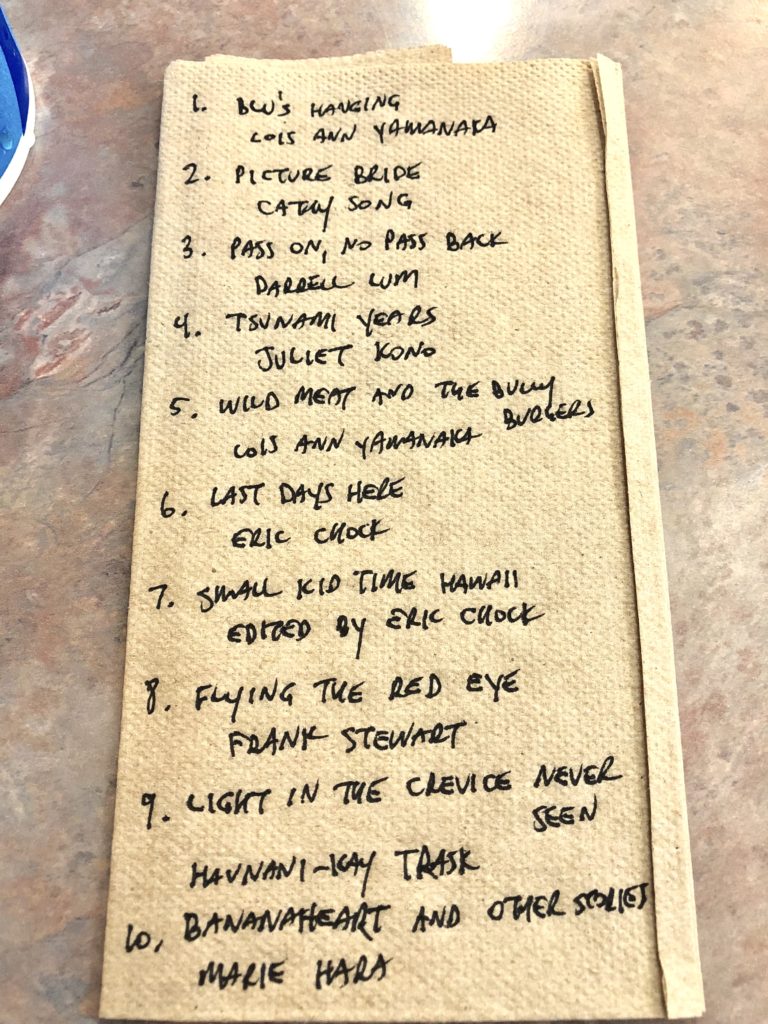 1. BLU'S HANGING
LOIS ANN YAMANAKA
2. PICTURE BRIDE
CATHY SONG
3. PASS ON, NO PASS BACK
DARRELL LUM
4. TSUNAMI YEARS
JULIET KONO
5. WILD MEAT AND THE BULLY
BURGERS
LOIS ANN YAMANAKA
6. LAST DAYS HERE
ERIC CHOCK
7. SMALL KID TIME HAWAII
EDITED BY ERIC CHOCK
8. FLYING THE RED EYE
FRANK STEWART
9. LIGHT IN THE CREVICE NEVER
SEEN
HAUNANI-KAY TRASK
10. BANANAHEART AND OTHER STORIES
MARIE HARA